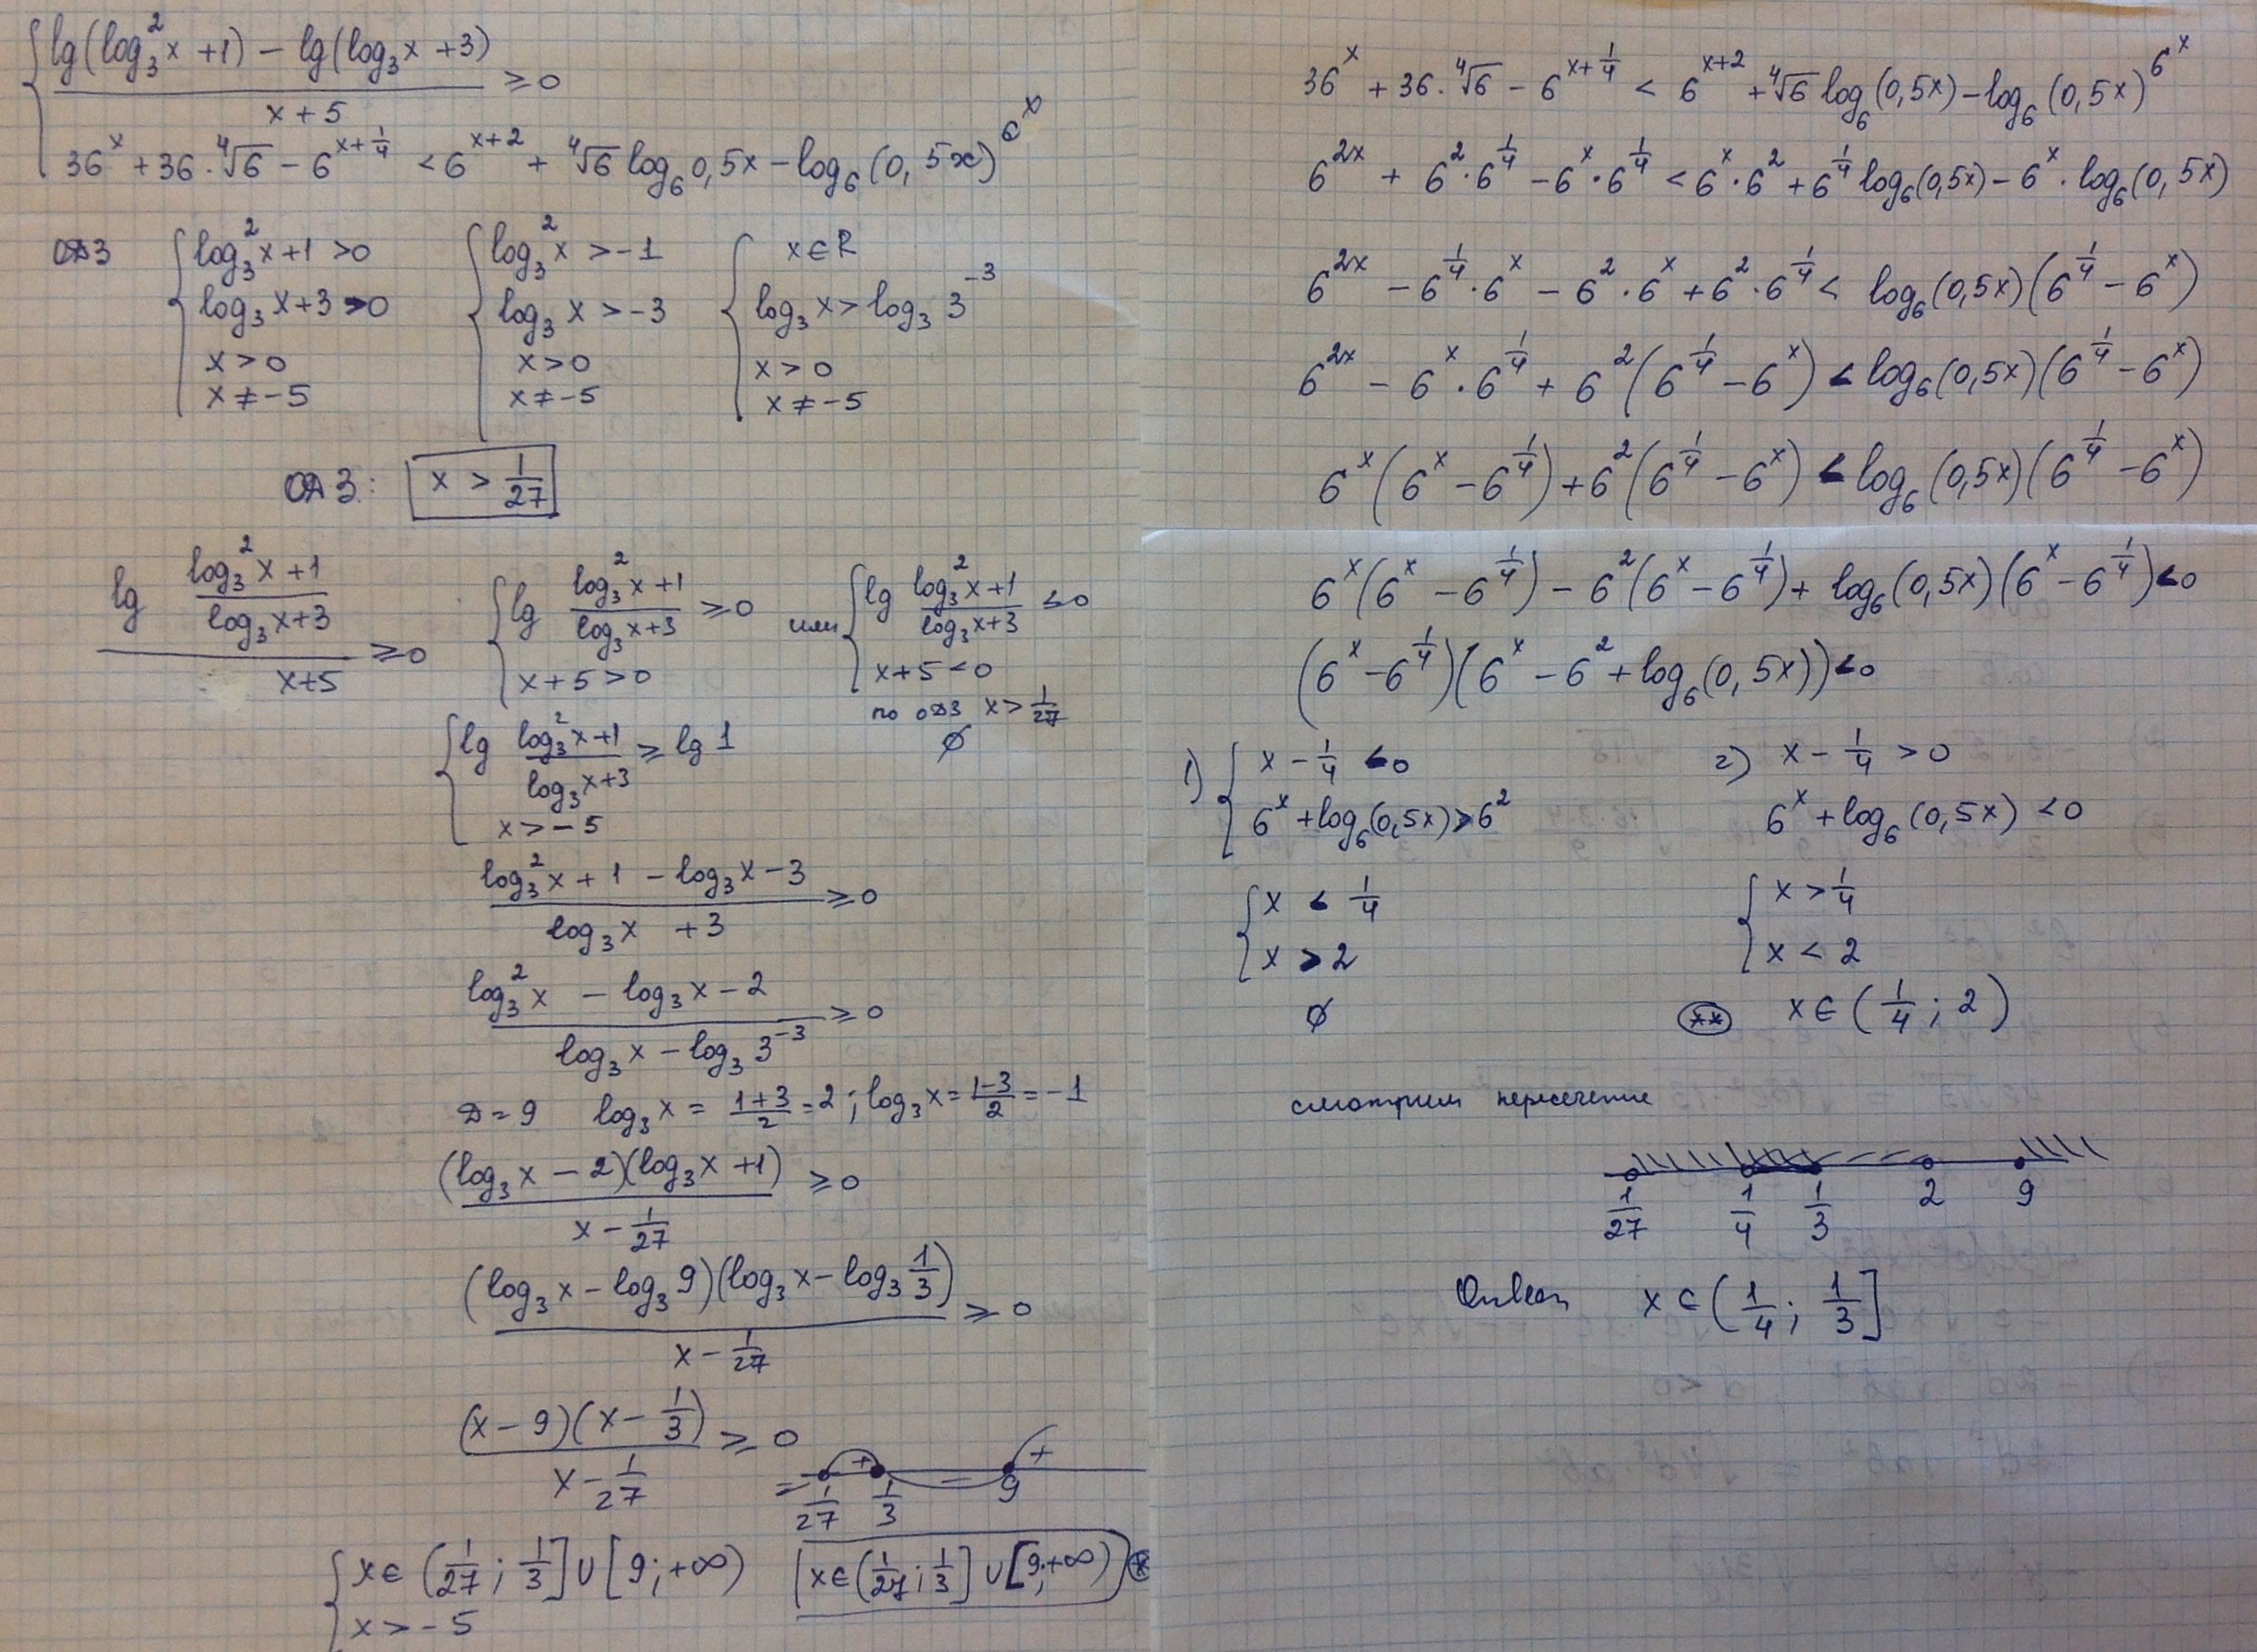 { (lg(log₃²x + 1) − lg(log₃x + 3))/(x + 5) ≥ 0
36^x + 36·⁴√6 − 6^(x+1/4) < 6^(x+2) + ⁴√6 log₆0,5x − log₆(0,5x)^(6^x)
ОДЗ { log₃²x + 1 > 0 { log₃²x > −1 { x ∈ R
log₃x + 3 > 0 log₃x > −3 log₃x > log₃3^(−3)
x > 0 x > 0 x > 0
x ≠ −5 x ≠ −5 x ≠ −5
ОДЗ: x > 1/27
(lg (log₃²x + 1)/(log₃x + 3))/(x+5) ≥ 0 { lg (log₃²x + 1)/(log₃x + 3) ≥ 0 или { lg (log₃²x + 1)/(log₃x + 3) ≤ 0
x + 5 > 0 x + 5 < 0
по ОДЗ x > 1/27
{ lg (log₃²x + 1)/(log₃x + 3) ≥ lg 1 ∅
x > −5
(log₃²x + 1 − log₃x − 3)/(log₃x + 3) ≥ 0
(log₃²x − log₃x − 2)/(log₃x − log₃3^(−3)) ≥ 0
D = 9 log₃x = (1+3)/2 = 2; log₃x = (1−3)/2 = −1
((log₃x − 2)(log₃x + 1))/(x − 1/27) ≥ 0
((log₃x − log₃9)(log₃x − log₃ 1/3))/(x − 1/27) ≥ 0
((x − 9)(x − 1/3))/(x − 1/27) ≥ 0
− + − +
1/27 1/3 9
{ x ∈ (1/27; 1/3] ∪ [9; +∞) x ∈ (1/27; 1/3] ∪ [9; +∞) *
x > −5
36^x + 36·⁴√6 − 6^(x+1/4) < 6^(x+2) + ⁴√6 log₆(0,5x) − log₆(0,5x)^(6^x)
6^(2x) + 6²·6^(1/4) − 6^x·6^(1/4) < 6^x·6² + 6^(1/4) log₆(0,5x) − 6^x·log₆(0,5x)
6^(2x) − 6^(1/4)·6^x − 6²·6^x + 6²·6^(1/4) < log₆(0,5x)(6^(1/4) − 6^x)
6^(2x) − 6^x·6^(1/4) + 6²(6^(1/4) − 6^x) < log₆(0,5x)(6^(1/4) − 6^x)
6^x(6^x − 6^(1/4)) + 6²(6^(1/4) − 6^x) < log₆(0,5x)(6^(1/4) − 6^x)
6^x(6^x − 6^(1/4)) − 6²(6^x − 6^(1/4)) + log₆(0,5x)(6^x − 6^(1/4)) < 0
(6^x − 6^(1/4))(6^x − 6² + log₆(0,5x)) < 0
1) { x − 1/4 < 0 2) x − 1/4 > 0
6^x + log₆(0,5x) > 6² 6^x + log₆(0,5x) < 0
{ x < 1/4 { x > 1/4
x > 2 x < 2
∅ ** x ∈ (1/4; 2)
смотрим пересечение
1/27 1/4 1/3 2 9
Ответ x ∈ (1/4; 1/3]